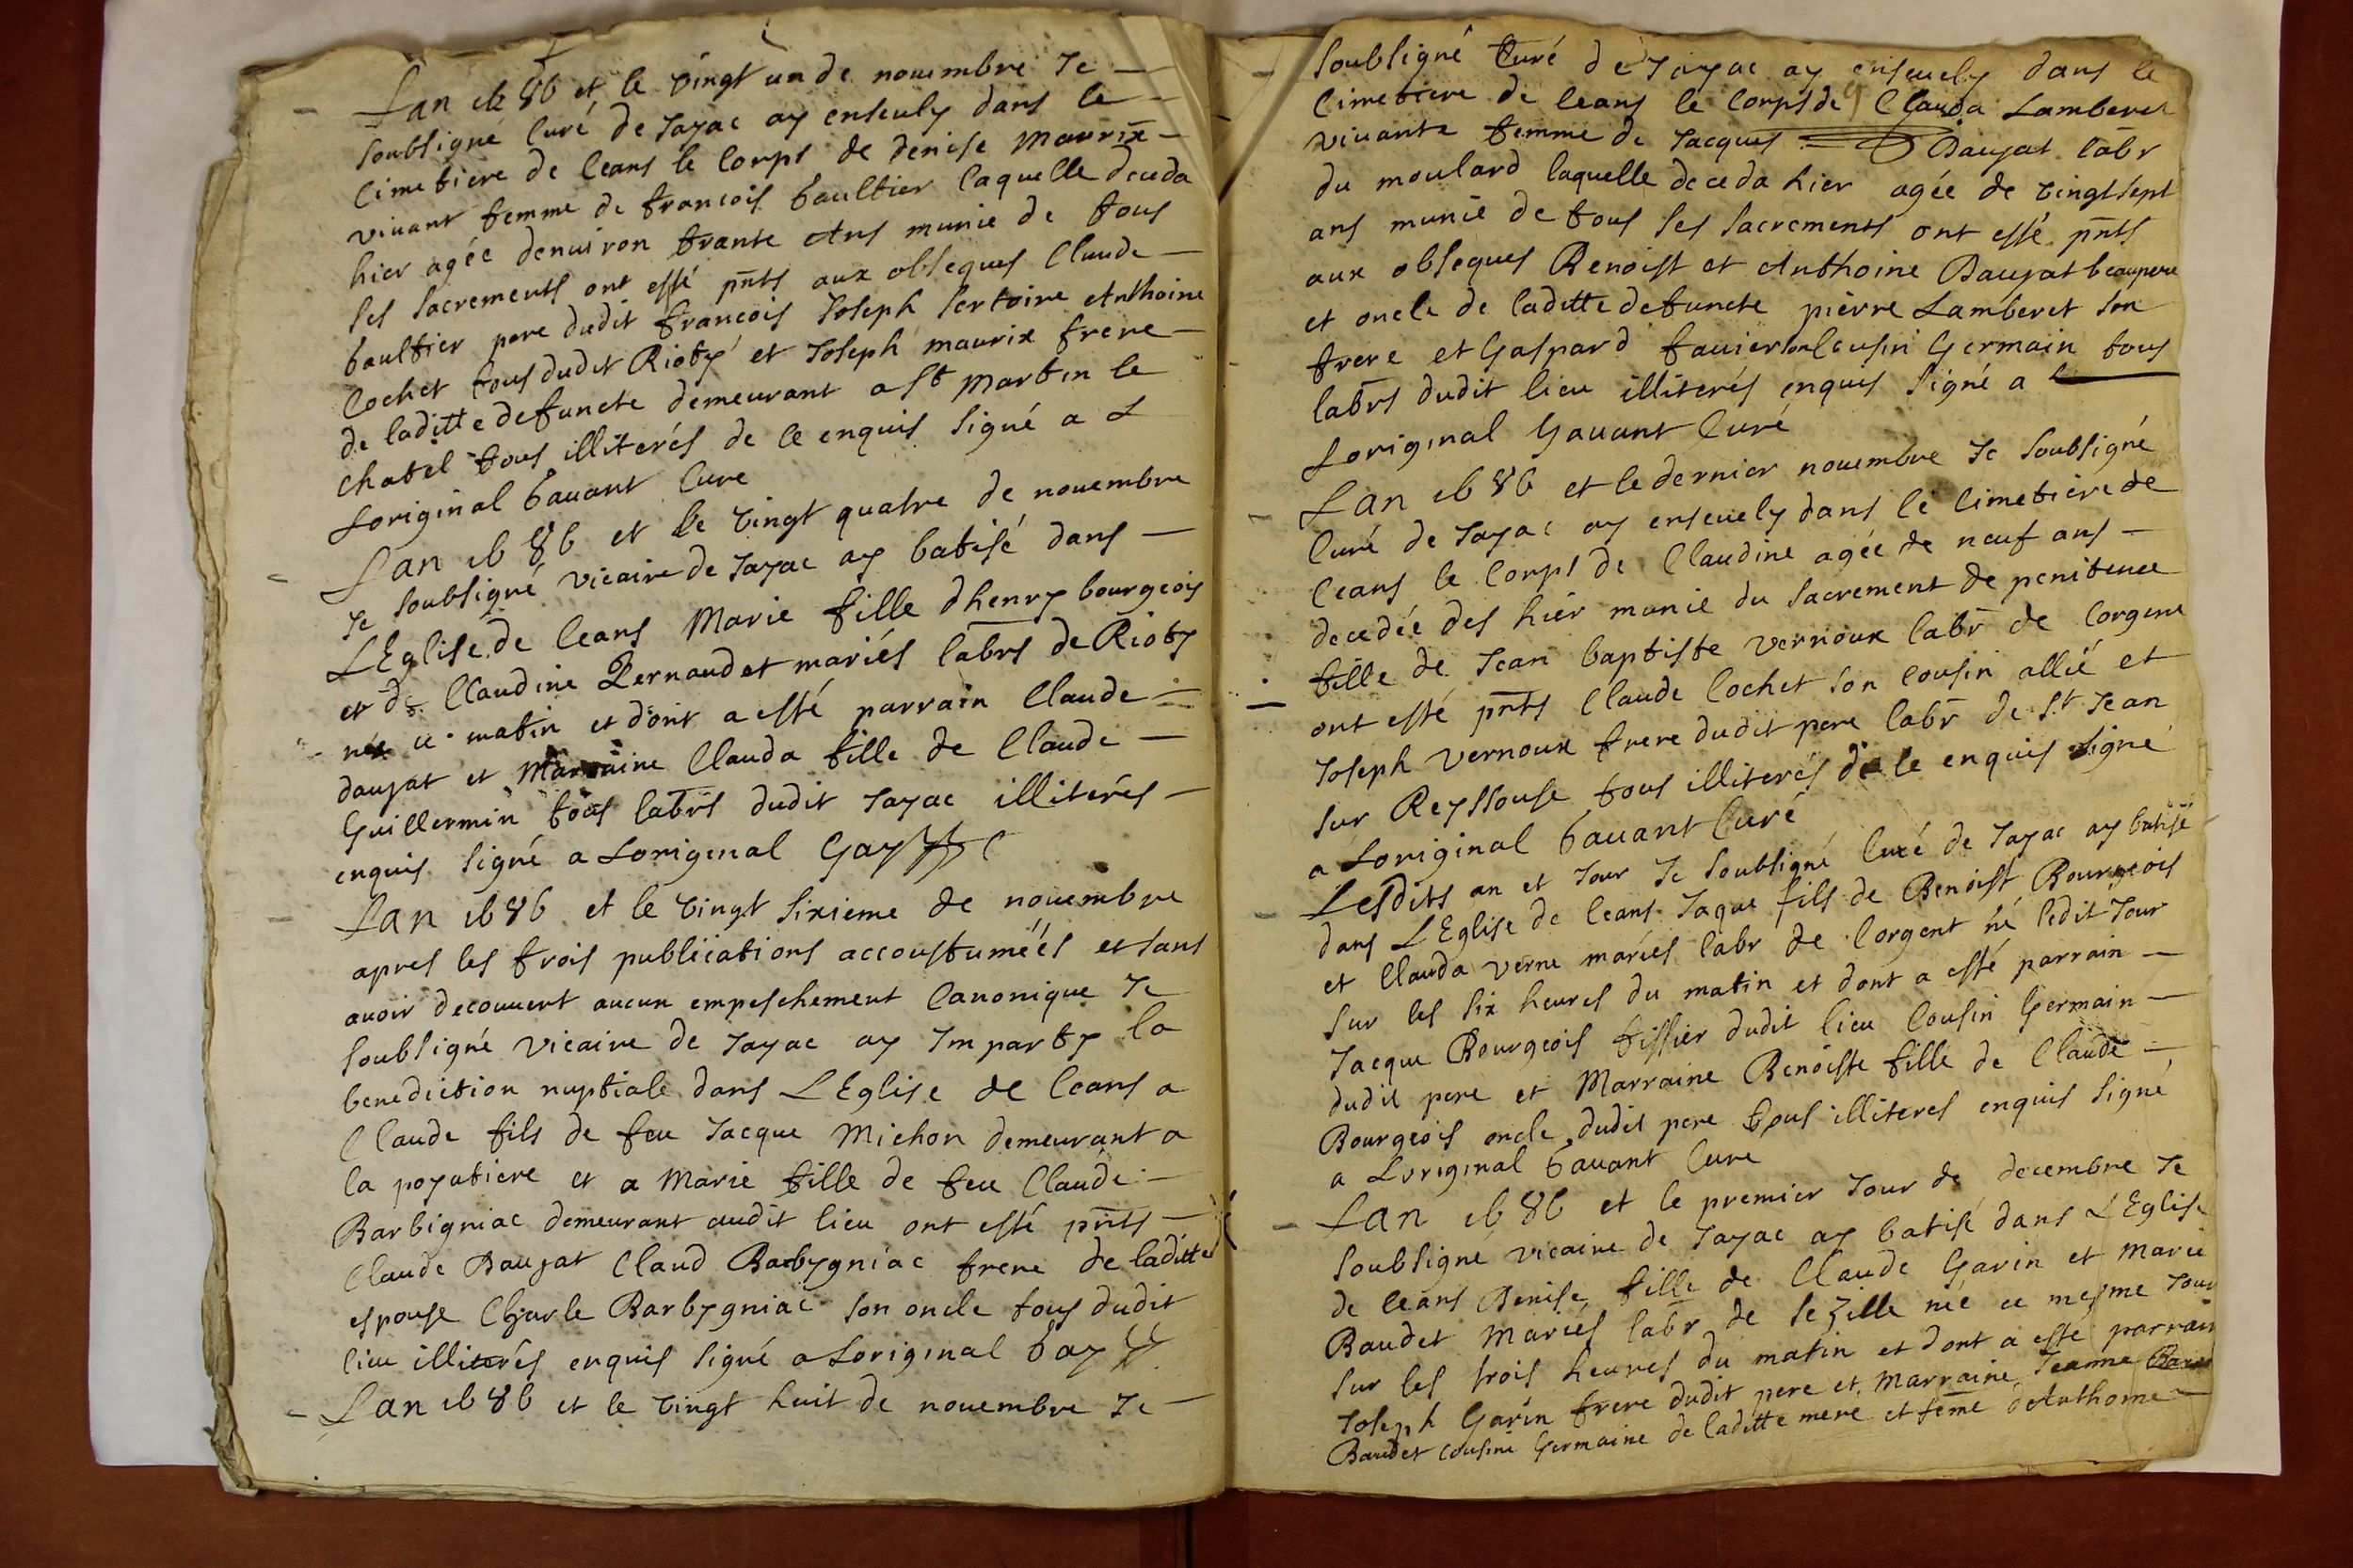 Lan 1686 et le vingt un de nouembre Je
soubsigné Curé de Jayac ay enseuely dans le
Cimetiere de Ceans le Corps de denise Maurix
viuant femme de francois Gaultier laquelle deceda
hier agée denuiron trante Ans munie de tous
ses sacrements ont esté pnts aux obseques Claude
Gaultier pere dudit francois Joseph Sertoire Anthoine
Cochet tous dudit Rioty et Joseph maurix frere
de laditte defuncte demeurant a St Martin le
chatel tous illiterés de ce enquis signé a L
Loriginal Gauant Cure
Lan 1686 et le vingt quatre de nouembre
Je soubsigné vicaire de Jayac ay batisé dans
LEglise de Ceans Marie fille dhenry bourgeois
et de Claudine Pernaudet mariés labrs de Rioty
née ce matin et dont a esté parrain Claude
daujat et Marraine Clauda fille de Claude
Guillermin tous labrs dudit Jayac illiterés
enquis signé a Loriginal Gay
Lan 1686 et le vingt sixieme de nouembre
apres les trois publications accoustumées et sans
auoir decouuert aucun empeschement Canonique Je
soubsigné vicaire de Jayac ay Imparty la
benediction nuptiale dans LEglise de Ceans a
Claude fils de feu Jacque Michon demeurant a
la poyatiere et a Marie fille de feu Claude
Barbigniac demeurant audit lieu ont esté pnts
Claude Baujat Claud Barbygniac frere de laditte
espouse Charle Barbygniac son oncle tous dudit
lieu illiterés enquis signé a Loriginal Gay
Lan 1686 et le vingt huit de nouembre Je
soubsigné Curé de Jayac ay enseuely dans le
Cimetiere de Ceans le Corps de Clauda Lamberet
viuante femme de Jacques Daujat labr
du moulard laquelle deceda hier agée de vingt sept
ans munie de tous ses sacrements ont esté pnts
aux obseques Benoist et Anthoine Daujat beaupere
et oncle de laditte defuncte pierre Lamberet son
frere et Gaspard fauier son Cousin Germain tous
labrs dudit lieu illiterés enquis signé a
Loriginal Gauant Curé
Lan 1686 et le dernier nouembre Je soubsigné
Curé de Jayac ay enseuely dans le Cimetiere de
Ceans le Corps de Claudine agée de neuf ans
decedée des hier munie du sacrement de penitence
fille de Jean baptiste vernoux labr de lorgent
ont esté pnts Claude Cochet son Cousin allié et
Joseph vernoux frere dudit pere labr de St Jean
sur Reyssouse tous illiterés de ce enquis signé
a Loriginal Gauant Curé
Lesdits an et Jour Je soubsigné Curé de Jayac ay batisé
dans LEglise de Ceans Jaque fils de Benoist Bourgeois
et Clauda verne mariés labr de lorgent né ledit Jour
sur les six heures du matin et dont a esté parrain
Jacque Bourgeois tissier dudit lieu Cousin Germain
dudit pere et Marraine Benoiste fille de Claude
Bourgeois oncle dudit pere tous illiteres enquis signé
a Loriginal Gauant Cure
Lan 1686 et le premier Jour de decembre Je
soubsigné vicaire de Jayac ay batisé dans LEglise
de Ceans Denise fille de Claude Garin et Marie
Baudet Mariés labr de sezille née ce mesme Jour
sur les trois heures du matin et dont a esté parrain
Joseph Garin frere dudit pere et Marraine Jeanne
Baudet Cousine Germaine de laditte mere et feme dAnthoine